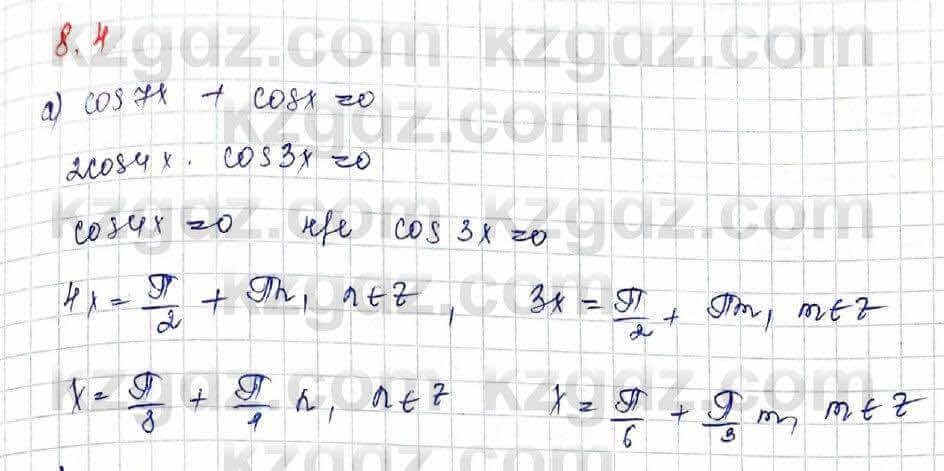 8.4
kzgdz.com kzgdz.com
а) cos 7x + cos x = 0
kzgdz.com
2cos 4x · cos 3x = 0
kzgdz.com kzgdz.com
cos 4x = 0 не cos 3x = 0
kzgdz.com
4x = π/2 + πn, n ∈ Z, 3x = π/2 + πm, m ∈ Z
kzgdz.com kzgdz.com
x = π/8 + π/4 n, n ∈ Z x = π/6 + π/3 m, m ∈ Z
kzgdz.com